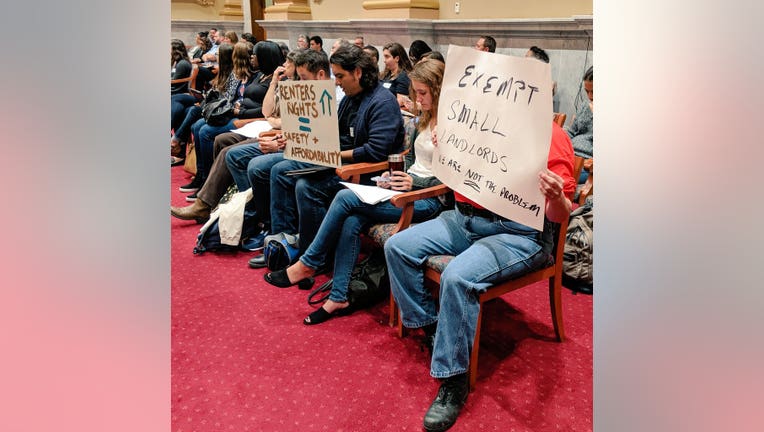 RENTERS
RIGHTS ↑
=
SAFETY +
AFFORDABILITY
EXEMPT
SMALL
LANDLORDS
WE ARE NOT THE PROBLEM